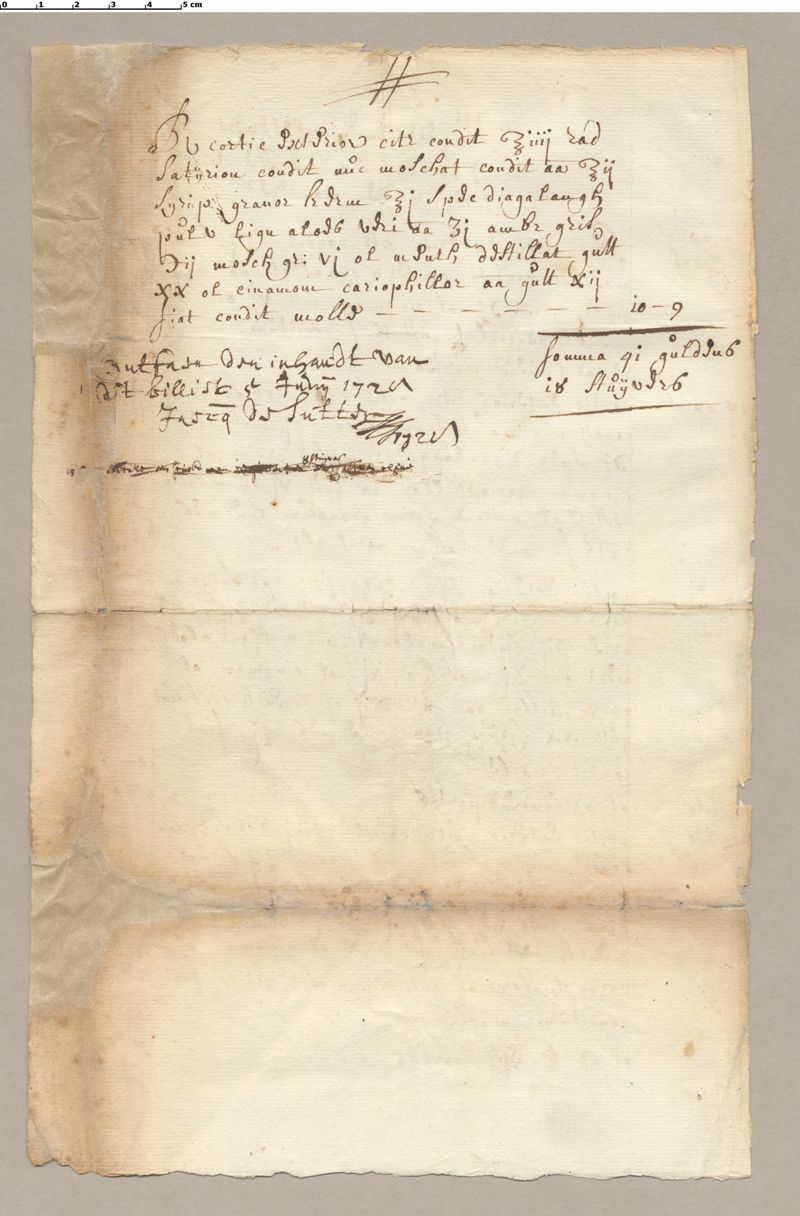 0 1 2 3 4 5 cm
#
℞ cortic exterior citr condit ℥iiij rad
Satijrion condit nuc moschat condit aa ℥ij
Syrup granor kerm ℥j Spec diagalangh
pulv lign aloes veri aa ʒj ambr gris
℈ij mosch gr: vj ol menth destillat gutt
xx ol cinamom cariophillor aa gutt xij
fiat condit molle — — — — — — — 10 - 9
Somma 91 guldens
18 stuyvers
ontfaen den inhoudt van
dit billiet 5 Junij 172
Jacq de Sutter
172